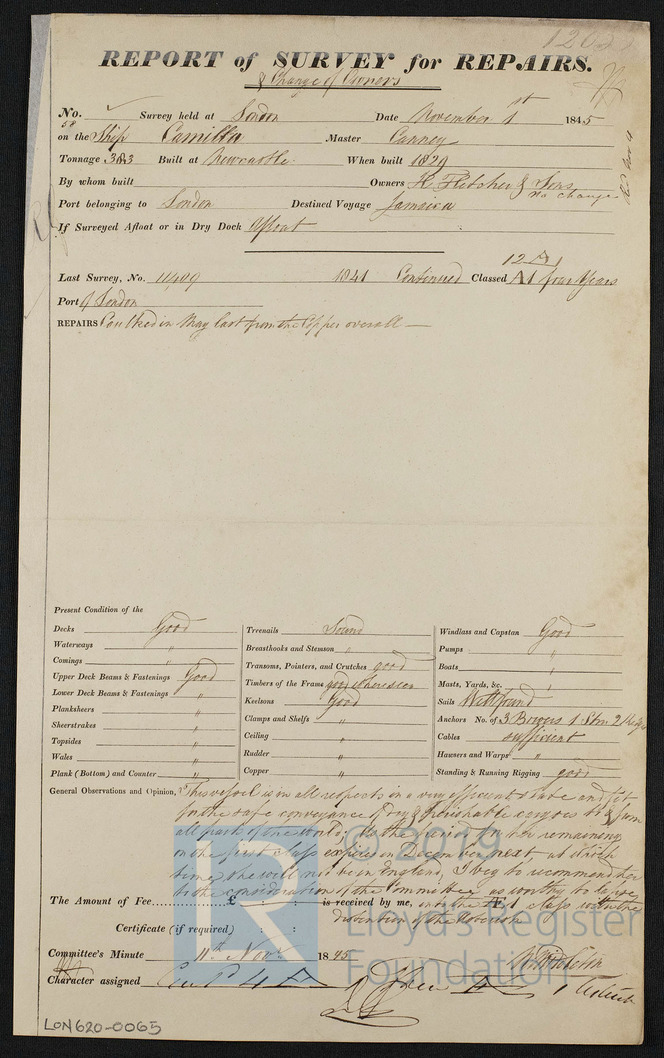 1203
REPORT of SURVEY for REPAIRS.
& Change of Owners
No. Survey held at London Date November 1st 1845
58
on the Ship Camilla Master Canney
Tonnage 383 Built at Newcastle. When built 1829
By whom built Owners H. Fletcher & Sons
no change
Port belonging to London Destined Voyage Jamaica
If Surveyed Afloat or in Dry Dock Afloat
12 A1
Last Survey, No. 11409 1841 Continued Classed A1 four Years
Port of London
REPAIRS Caulked in May last from the Copper overall —
Present Condition of the
Decks Good
Waterways "
Comings "
Upper Deck Beams & Fastenings Good
Lower Deck Beams & Fastenings "
Planksheers "
Sheerstrakes "
Topsides "
Wales "
Plank (Bottom) and Counter "
Treenails Sound
Breasthooks and Stemson "
Transoms, Pointers, and Crutches good
Timbers of the Frame good where seen
Keelsons Good
Clamps and Shelfs "
Ceiling "
Rudder "
Copper "
Windlass and Capstan Good
Pumps "
Boats "
Masts, Yards, &c. "
Sails Well found
Anchors No. of 3 Bowers 1 Strm 2 Kedges
Cables sufficient
Hawsers and Warps "
Standing & Running Rigging good
General Observations and Opinion, This vessel is in all respects in a very efficient state and fit
for the safe conveyance of dry & perishable cargoes to & from
all parts of the world; As the period for her remaining
on the first class expires in December next, at which
time she will not be in England, I beg to recommend her
to the consideration of the Committee, as worthy to
The Amount of Fee £ : : is received by me, on the Æ 1 class
discretion of the
Certificate (if required) : :
Committee's Minute 11th Novr 1845
Character assigned
LON620-0065
© 2019
Lloyd's Register
Foundation
LR